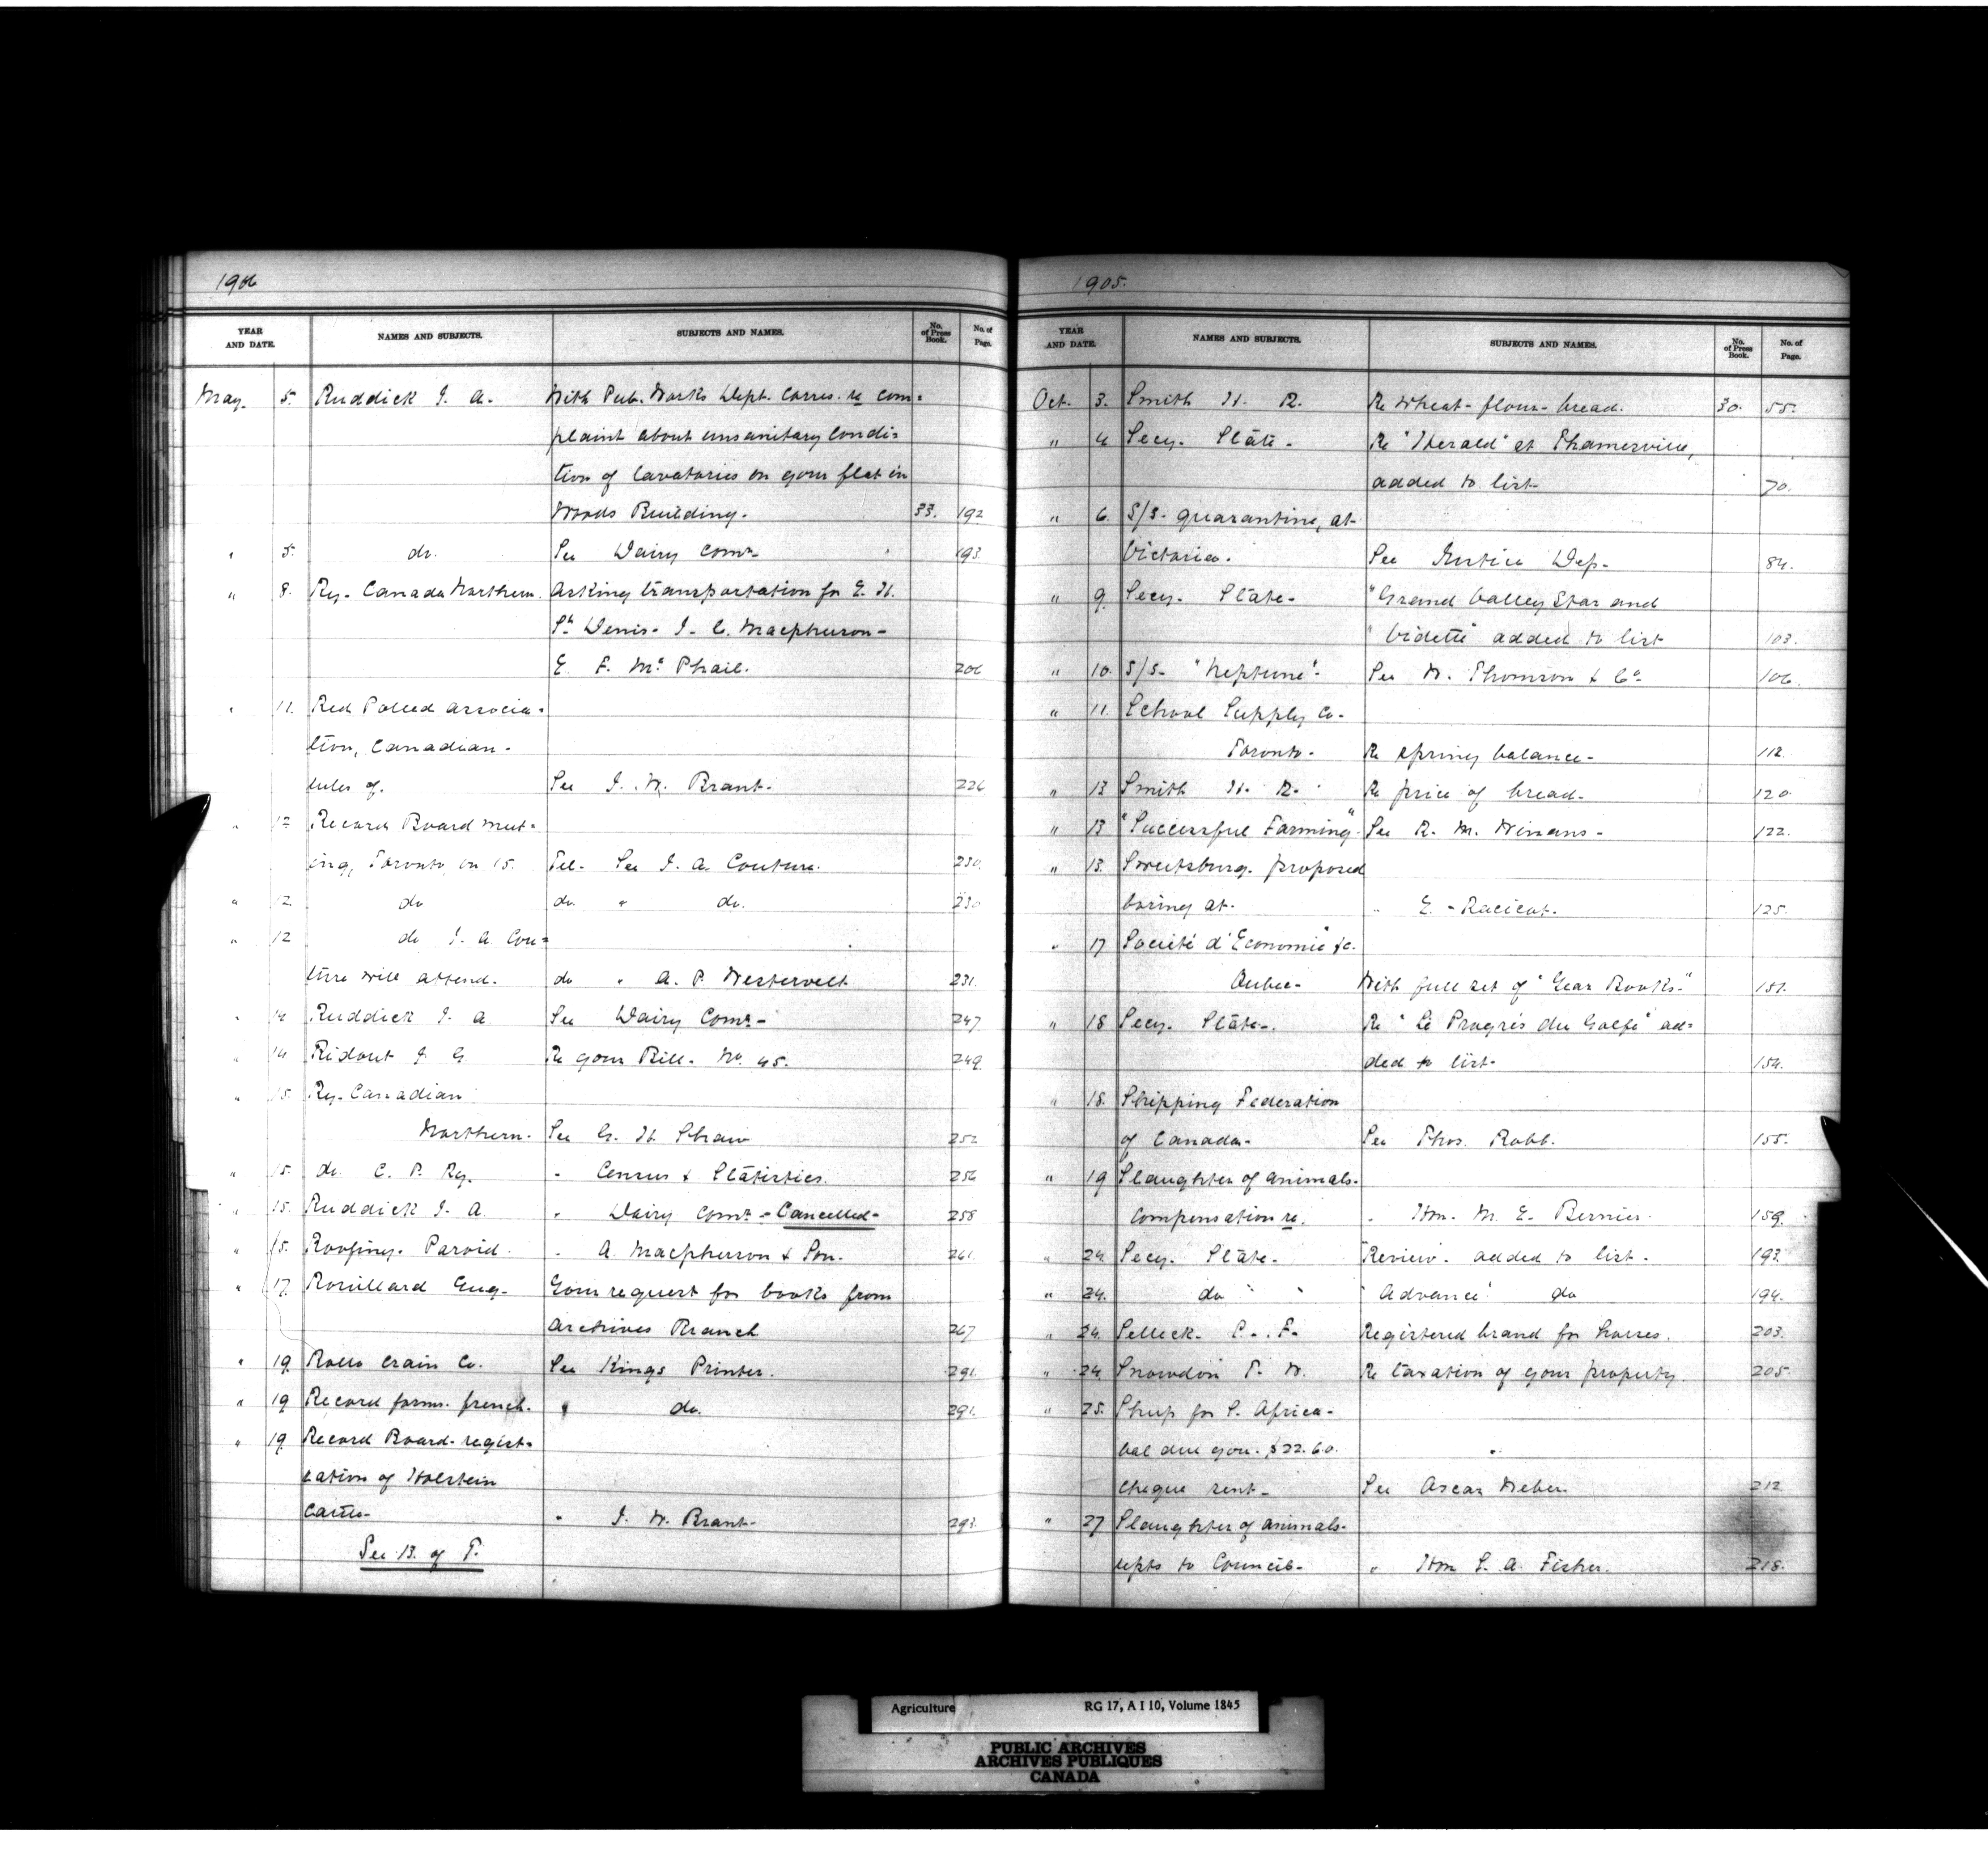 1906
YEAR AND DATE. NAMES AND SUBJECTS. SUBJECTS AND NAMES. No. of Press Book. No. of Page.
May. 5. Ruddick J. A. With Pub. Works Dept. Corres. re com=
plaint about unsanitary Condi=
tion of lavatories on your flat in
Woods Building. 33. 192
" 5. do. See Dairy Comr. 193
" 8. Ry. Canada Northern. Asking transportation for E. H.
St Denis. J. C. Macpherson-
E. F. Mc Phail. 206
" 11. Red Polled Associa=
tion, Canadian-
rules of. See J. W. Brant. 226
" 12 Record Board meet=
ing, Toronto on 15. Tel- See J. A. Couture. 230.
" 12. do do. " do. 230
" 12 do J. A. Cou=
ture will attend. do " A. P. Westervelt 231.
" 14 Ruddick J. A. See Dairy Comr- 247
" 14 Ridout J. G. Re your Bill. No. 45. 249.
" 15. Ry. Canadian
Northern. See G. H. Shaw 252
" 15. do. C. P. Ry. " Census & Statistics. 256
" 15. Ruddick J. A. " Dairy Comr. - Cancelled- 258
" 15. Roofing. Paroid. " A. Macpherson & Son. 261.
" 17. Rouillard Eug. Your request for books from
Archives Branch 267
" 19. Rolla Crain Co. See Kings Printer. 291.
" 19 Record forms. french. " do. 291.
" 19. Record Board- regist=
ration of Holstein
Cattle- " J. W. Brant- 293.
See 13. of T.
1905.
YEAR AND DATE. NAMES AND SUBJECTS. SUBJECTS AND NAMES. No. of Press Book. No. of Page.
Oct. 3. Smith H. R. Re Wheat- flour- bread. 30. 55.
" 4 Secy. State- Re "Herald" at Thamesville,
added to list- 70.
" 6. S/S- quarantine, at
Victoria. See Justice Dep- 84.
" 9. Secy. State- "Grand Valley Star and
"Vidette" added to list 103.
" 10. S/S- "Neptune"- See W. Thomson & Co 106.
" 11. School Supply Co-
Toronto- Re spring balance- 112.
" 13 Smith H. R. Re price of bread- 120.
" 13 "Successful Farming" See R. M. Winans- 122.
" 13. Sweetsburg. proposed
boring at. " E. Racicot. 125.
" 17 Société d'Economie &c.
Quebec- With full set of "Year Books-" 151.
" 18 Secy. State-. Re "Le Progrès du Golfe" ad=
ded to list- 154.
" 18. Shipping Federation
of Canada- See Thos. Robb. 155.
" 19 Slaughter of animals-
compensation re. " Hon. M. E. Bernier. 159.
" 24. Secy. State- "Review" added to list- 193.
" 24. do " "Advance" do 194.
" 24. Selleck- P. F. Registered brand for horses. 203.
" 24. Snowdon T. W. Re taxation of your property. 205.
" 25. Sheep for S. Africa-
bal due you. $22.60.
cheque sent- See Oscar Weber. 212
" 27 Slaughter of animals-
repts to Council- " Hon S. A. Fisher. 218.
Agriculture RG 17, A I 10, Volume 1845
PUBLIC ARCHIVES
ARCHIVES PUBLIQUES
CANADA